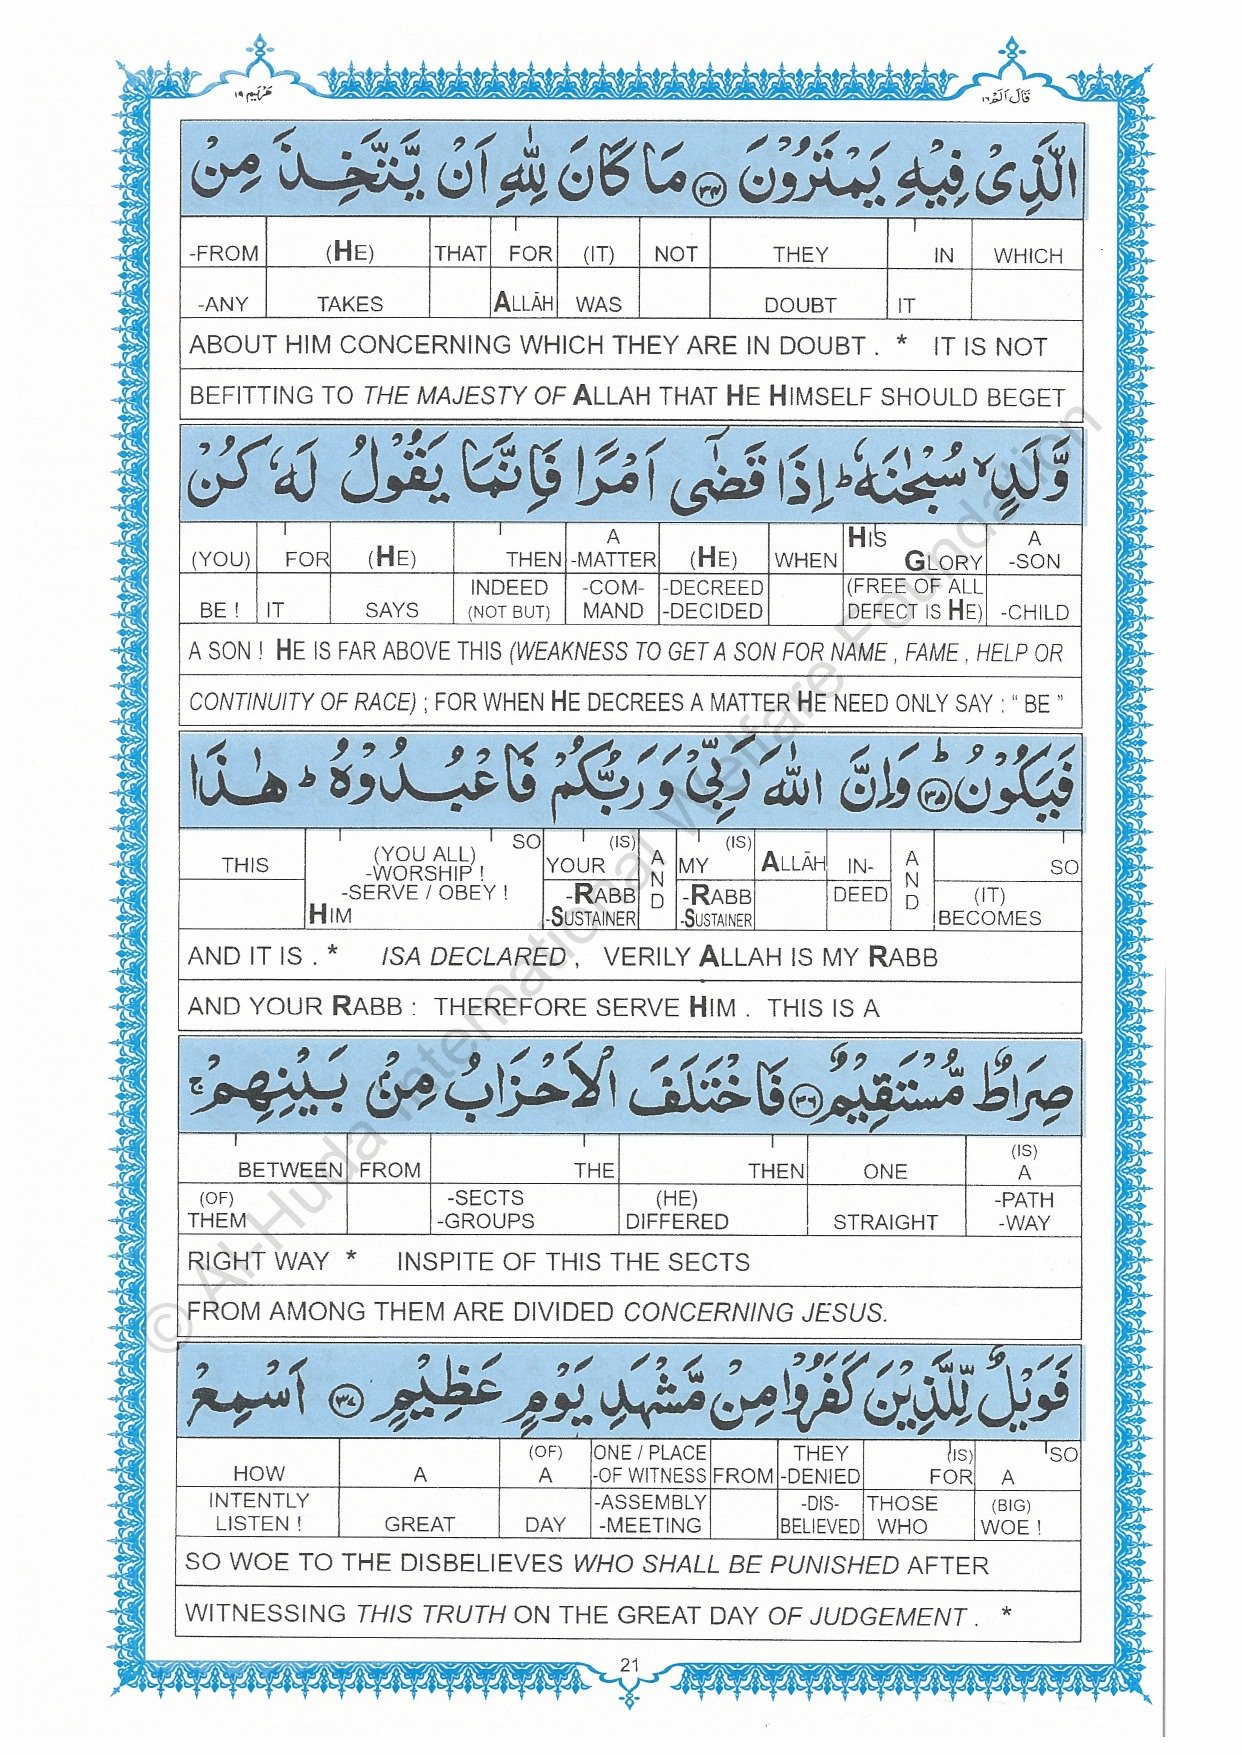 مَرْيَم ١٩
قَالَ اَلَمْ ١٦
الَّذِىْ فِيْهِ يَمْتَرُوْنَ ۝٣٤ مَا كَانَ لِلّٰهِ اَنْ يَّتَّخِذَ مِنْ
-FROM (HE) THAT FOR (IT) NOT THEY IN WHICH
-ANY TAKES ALLĀH WAS DOUBT IT
ABOUT HIM CONCERNING WHICH THEY ARE IN DOUBT . * IT IS NOT
BEFITTING TO THE MAJESTY OF ALLAH THAT HE HIMSELF SHOULD BEGET
وَّلَدٍ ۙ سُبْحٰنَهٗ ؕ اِذَا قَضٰٓى اَمْرًا فَاِنَّمَا يَقُوْلُ لَهٗ كُنْ
A HIS A
(YOU) FOR (HE) THEN -MATTER (HE) WHEN GLORY -SON
INDEED -COM- -DECREED (FREE OF ALL
BE ! IT SAYS (NOT BUT) MAND -DECIDED DEFECT IS HE) -CHILD
A SON ! HE IS FAR ABOVE THIS (WEAKNESS TO GET A SON FOR NAME , FAME , HELP OR
CONTINUITY OF RACE) ; FOR WHEN HE DECREES A MATTER HE NEED ONLY SAY : “ BE ”
فَيَكُوْنُ ؕ ۝٣٥ وَاِنَّ اللّٰهَ رَبِّىْ وَرَبُّكُمْ فَاعْبُدُوْهُ ؕ هٰذَا
SO (IS) (IS)
THIS (YOU ALL) YOUR A MY ALLĀH IN- A SO
-WORSHIP ! N N
-SERVE / OBEY ! -RABB D -RABB DEED D (IT)
HIM -SUSTAINER -SUSTAINER BECOMES
AND IT IS . * ISA DECLARED , VERILY ALLAH IS MY RABB
AND YOUR RABB : THEREFORE SERVE HIM . THIS IS A
صِرَاطٌ مُّسْتَقِيْمٌ ۝٣٦ فَاخْتَلَفَ الْاَحْزَابُ مِنْۢ بَيْنِهِمْ ۚ
(IS)
BETWEEN FROM THE THEN ONE A
(OF) -SECTS (HE) -PATH
THEM -GROUPS DIFFERED STRAIGHT -WAY
RIGHT WAY * INSPITE OF THIS THE SECTS
FROM AMONG THEM ARE DIVIDED CONCERNING JESUS.
فَوَيْلٌ لِّلَّذِيْنَ كَفَرُوْا مِنْ مَّشْهَدِ يَوْمٍ عَظِيْمٍ ۝٣٧ اَسْمِعْ
(OF) ONE / PLACE THEY (IS) SO
HOW A A -OF WITNESS FROM -DENIED FOR A
INTENTLY -ASSEMBLY -DIS- THOSE (BIG)
LISTEN ! GREAT DAY -MEETING BELIEVED WHO WOE !
SO WOE TO THE DISBELIEVES WHO SHALL BE PUNISHED AFTER
WITNESSING THIS TRUTH ON THE GREAT DAY OF JUDGEMENT . *
21
© Al-Huda International Welfare Foundation